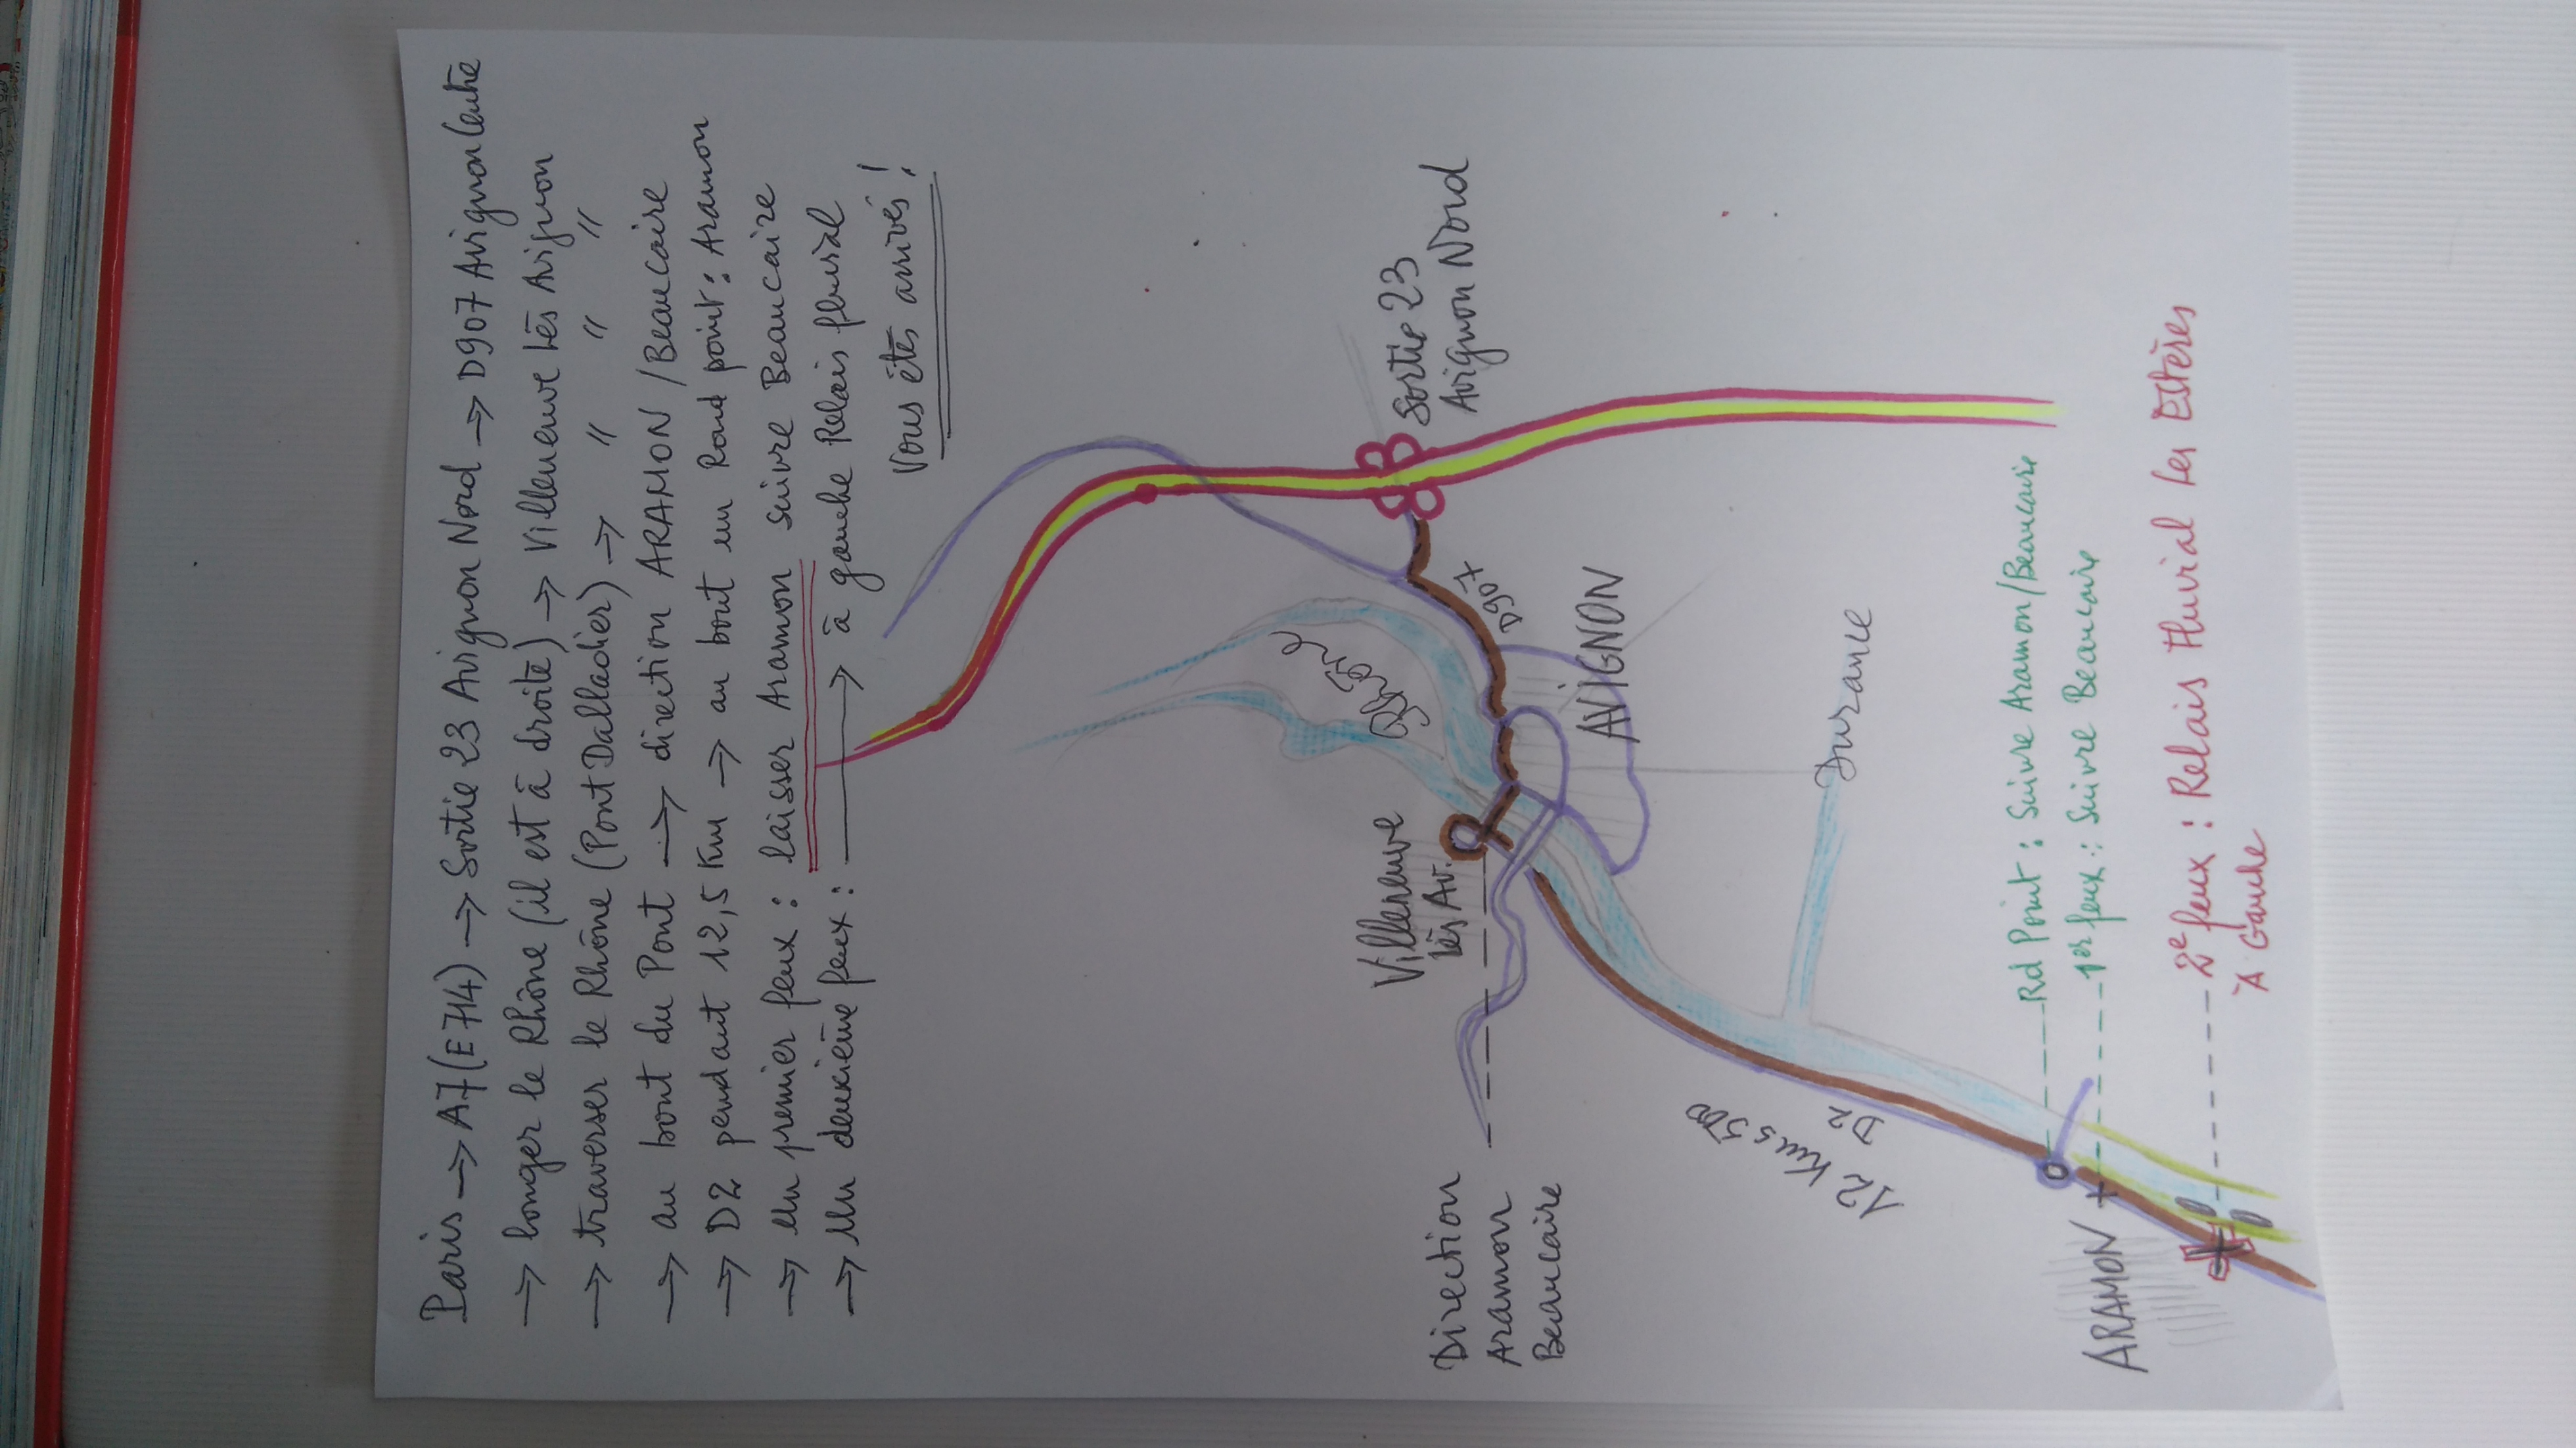 Paris → A7 (E714) → Sortie 23 Avignon Nord → D907 Avignon Centre
→ longer le Rhône (il est à droite) → Villeneuve Lès Avignon
→ traverser le Rhône (Pont Dalladier) → " " "
→ au bout du Pont → direction ARAMON / Beaucaire
→ D2 pendant 12,5 Km → au bout un Rond point : Aramon
→ Un premier feux : laisser Aramon suivre Beaucaire
→ Un deuxième feux : → à gauche Relais fluvial
Vous êtes arrivés !
Sortie 23
Avignon Nord
D907
Rhône
AVIGNON
Villeneuve
Lès Av.
Direction
Aramon
Beaucaire
Durance
12 Kms 500
D2
Rd Point : Suivre Aramon/Beaucaire
1er feux : Suivre Beaucaire
ARAMON
2e feux : Relais Fluvial Les Estères
À Gauche